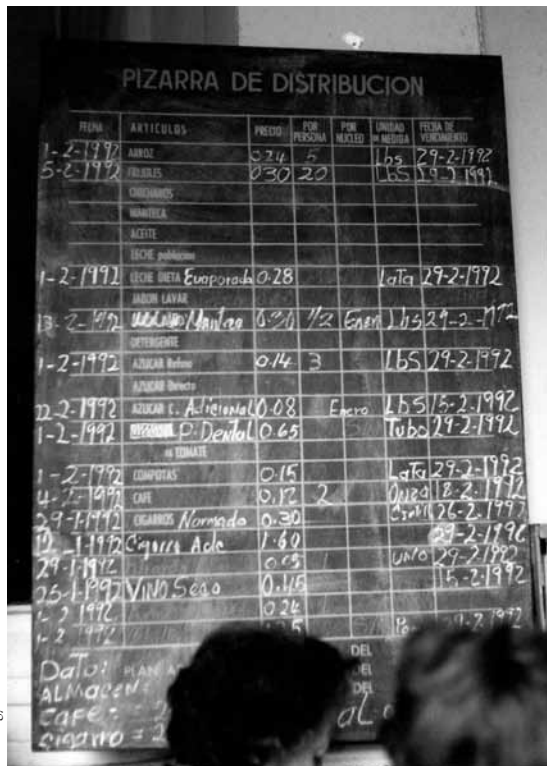 PIZARRA DE DISTRIBUCION
FECHA ARTICULOS PRECIO POR PERSONA POR NUCLEO UNIDAD DE MEDIDA FECHA DE VENCIMIENTO
1-2-1992 ARROZ 0.24 5 Lbs 29-2-1992
5-2-1992 FRIJOLES 0.30 20 Lbs 29-2-1992
CHICHAROS
MANTECA
ACEITE
LECHE poblacion
1-2-1992 LECHE DIETA Evaporada 0.28 Lata 29-2-1992
JABON LAVAR
13-2-1992 Manteca 0.30 1/2 Enero Lbs 29-2-1992
DETERGENTE
1-2-1992 AZUCAR Refino 0.14 3 Lbs 29-2-1992
AZUCAR Directo
22-2-1992 AZUCAR C. Adicional 0.08 Enero Lbs 15-2-1992
1-2-1992 P. Dental 0.65 Tubo 29-2-1992
TOMATE
1-2-1992 COMPOTAS 0.15 Lata 29-2-1992
4-2-1992 CAFE 0.12 2 Onza 18-2-1992
29-1-1992 CIGARROS Normado 0.30 26-2-1992
1-1992 Cigarro 1.60 29-2-1992
29-1-1992 uno 29-2-1992
25-1-1992 Vino Seco 0.45 15-2-1992
1-2 1992 0.24
1-2 1992 29-2-1992
Dato: PLAN DEL
ALMACEN: DEL
Cafe = DEL
Cigarro = 2 al